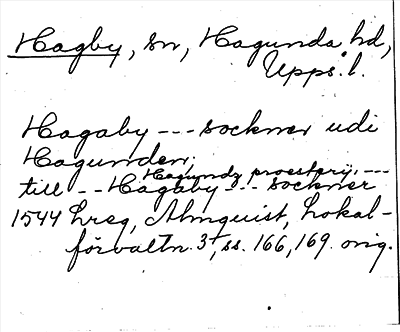 Hagby, sn, Hagunda hd,
Upps. l.
Hagaby --- sockner udi
Hagunden;
Hagundz proesterij, ---
till -- Hagaby --- sockner
1544 Lreg, Almquist, Lokal-
förvaltn. 3, ss. 166, 169. orig.